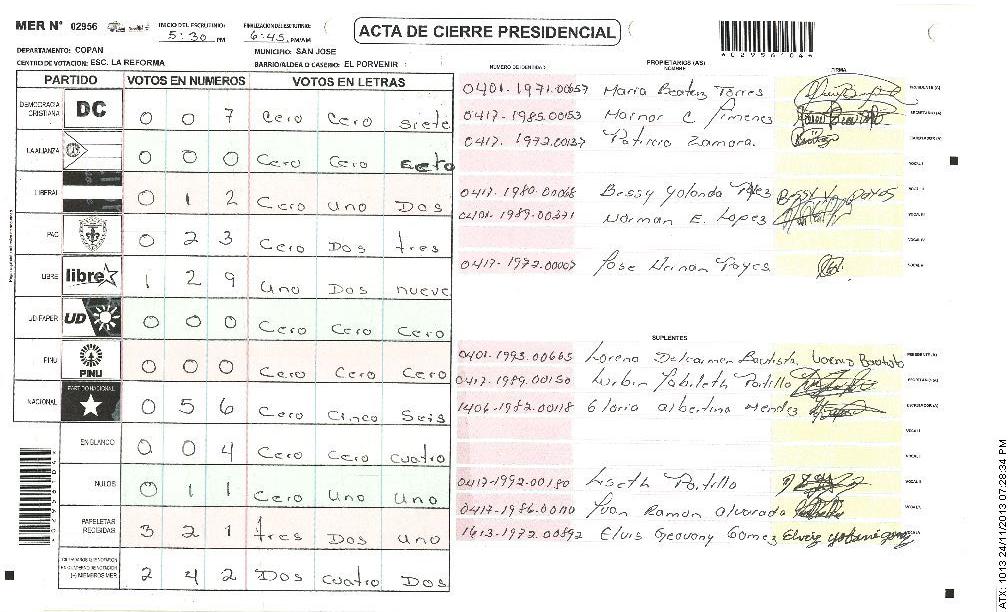 MER N° 02956 INICIO DEL ESCRUTINIO: 5:30 PM FINALIZACION DEL ESCRUTINIO: 6:45 PM/AM ACTA DE CIERRE PRESIDENCIAL
DEPARTAMENTO: COPAN MUNICIPIO: SAN JOSE
CENTRO DE VOTACION: ESC. LA REFORMA BARRIO/ALDEA O CASERIO: EL PORVENIR
PARTIDO VOTOS EN NUMEROS VOTOS EN LETRAS
DEMOCRACIA CRISTIANA DC 0 0 7 Cero Cero siete
LA ALIANZA 0 0 0 Cero Cero cero
LIBERAL 0 1 2 Cero Uno Dos
PAC 0 2 3 Cero Dos tres
LIBRE libre 1 2 9 Uno Dos nueve
UD FAPER UD 0 0 0 Cero Cero Cero
PINU PINU 0 0 0 Cero Cero Cero
NACIONAL PARTIDO NACIONAL 0 5 6 Cero Cinco Seis
EN BLANCO 0 0 4 Cero Cero cuatro
NULOS 0 1 1 Cero Uno Uno
PAPELETAS RECIBIDAS 3 2 1 tres Dos Uno
(+) MIEMBROS MER 2 4 2 Dos cuatro Dos
NUMERO DE IDENTIDAD PROPIETARIOS (AS) NOMBRE FIRMA
0401-1971-00657 Maria Beatriz Torres PRESIDENTE (A)
0417-1985-00153 Marnor C Jimenez SECRETARIO (A)
0417-1972-00137 Patricia Zamora ESCRUTADOR (A)
VOCAL I
0417-1980-00068 Bessy Yolanda VOCAL II
0401-1989-00371 Norman E. Lopez VOCAL III
VOCAL IV
0417-1972-00007 Jose Hernan VOCAL V
SUPLENTES
0401-1993-00665 Lorena Delcarmen Bautista PRESIDENTE (A)
0417-1989-00150 Portillo SECRETARIO (A)
1406-1982-00118 Gloria albertina Mendez ESCRUTADOR (A)
VOCAL I
0417-1992-00180 Liseth Portillo
0417-1986-00110 Yvan Ramon alvarado
1613-1972-00892 Elvis Geovany Gomez
ATX: 1013 24/11/2013 07:28:34 PM